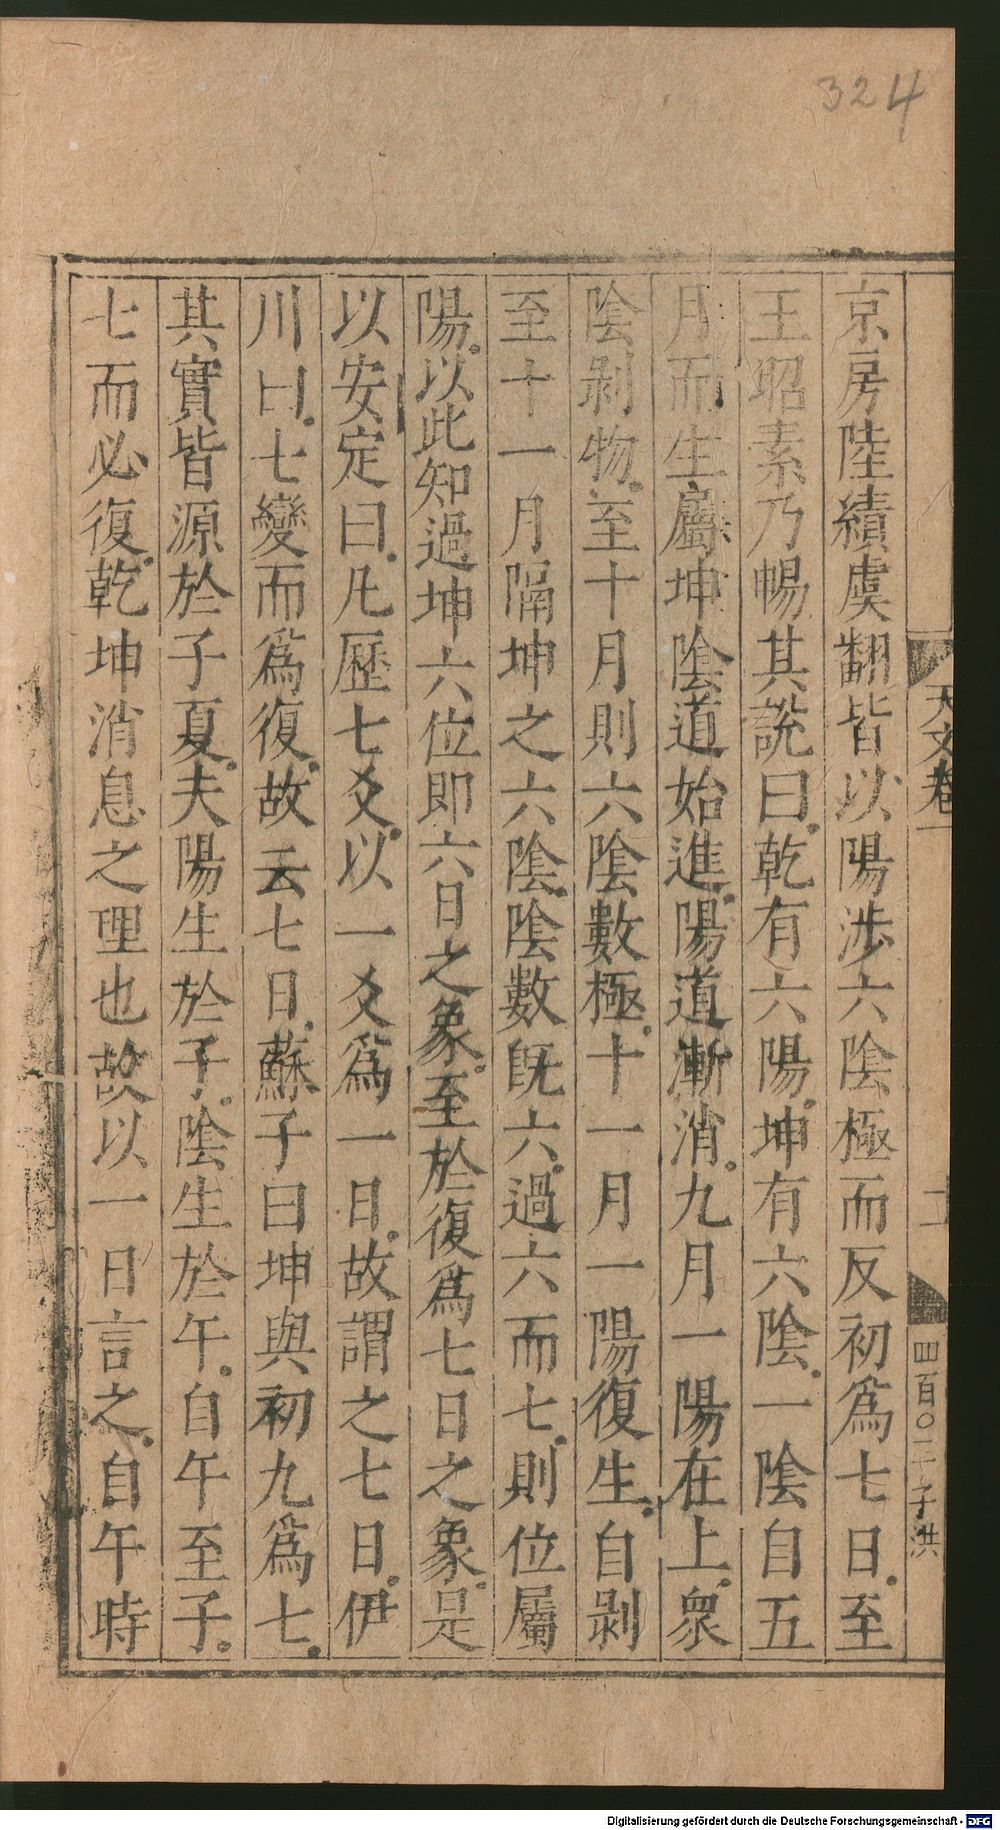 324
天文卷一
四百〇二子洪
京房陸績虞翻皆以陽涉六陰極而反初爲七日。至
王昭素乃暢其說曰。乾有六陽。坤有六陰。一陰自五
月而生屬坤陰道始進。陽道漸消。九月一陽在上。衆
陰剥物。至十月則六陰數極。十一月一陽復生。自剥
至十一月隔坤之六陰。陰數旣六。過六而七。則位屬
陽。以此知過坤六位即六日之象。至於復爲七日之象。是
以安定曰。凡歷七爻。以一爻爲一日。故謂之七日。伊
川曰。七變而爲復。故云七日。蘇子曰坤與初九爲七。
其實皆源於子夏。夫陽生於子。陰生於午。自午至子。
七而必復。乾坤消息之理也故以一日言之。自午時
Digitalisierung gefördert durch die Deutsche Forschungsgemeinschaft - DFG